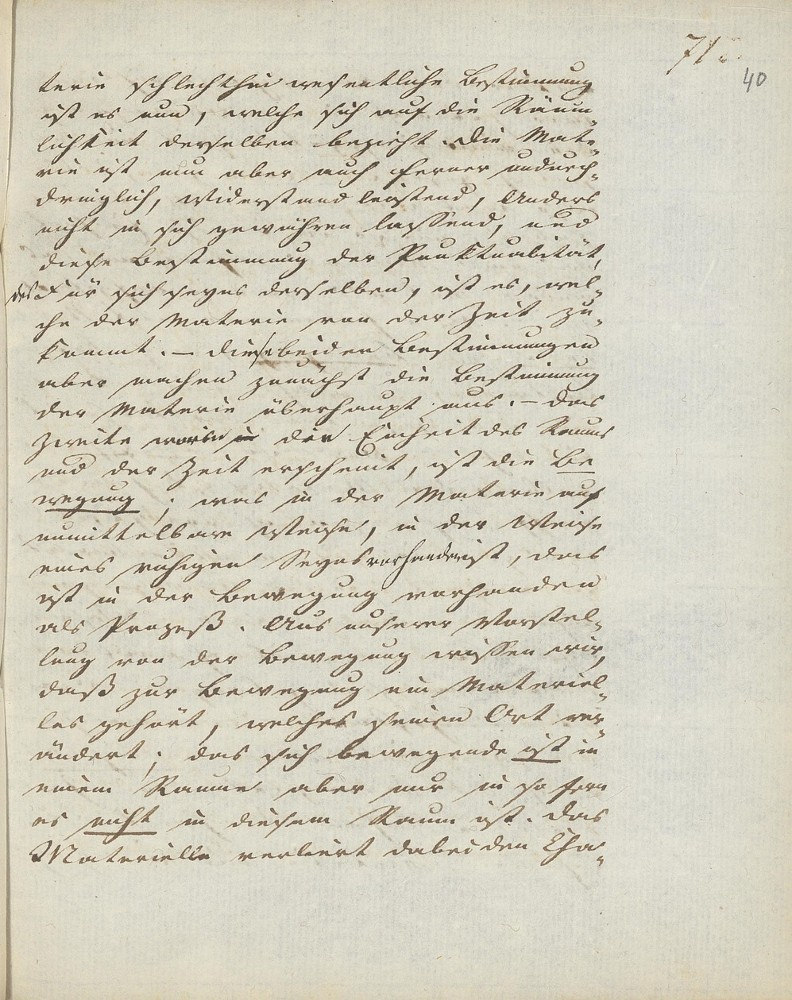 71
40
terie schlechthin wesentliche Bestimmung
ist es nun, welche sich auf die Räum
lichkeit derselben bezieht. Die Mate-
rie ist nun aber auch ferner undurch-
dringlich, Widerstand leistend, Anders
nicht in sich gewähren lassend, und
diese Bestimmung der Punktualität,
des Für sich seyns derselben, ist es, wel-
che der Materie von der Zeit zu-
kommt. – Diese beiden Bestimmungen
aber machen zunächst die Bestimmung
der Materie überhaupt aus. – Das
Zweite worin die Einheit des Raums
und der Zeit erscheint, ist die Be
wegung; was in der Materie auf
unmittelbare Weise, in der Weise
eines ruhigen Seyns vorhanden ist, das
ist in der Bewegung vorhanden
als Prozeß. Aus unserer Vorstel-
lung von der Bewegung wissen wir,
daß zur Bewegung ein Materiel-
les gehört, welches seinen Ort ver
ändert; das sich bewegende ist in
einem Raume aber nur in so fern
es nicht in diesem Raum ist. Das
Materielle verliert dabei den Cha-